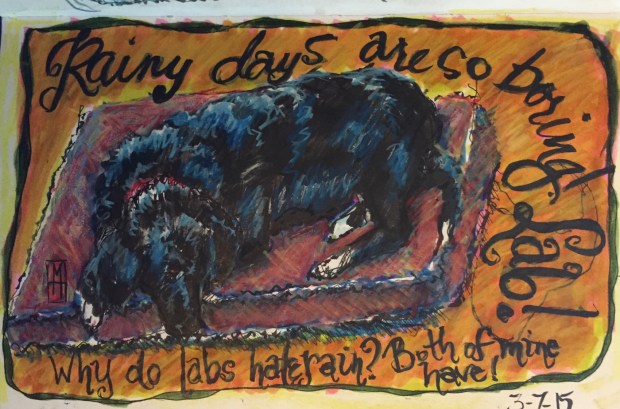 Rainy days are so boring Lab!
Why do labs hate rain? Both of mine
have!
3-7-15